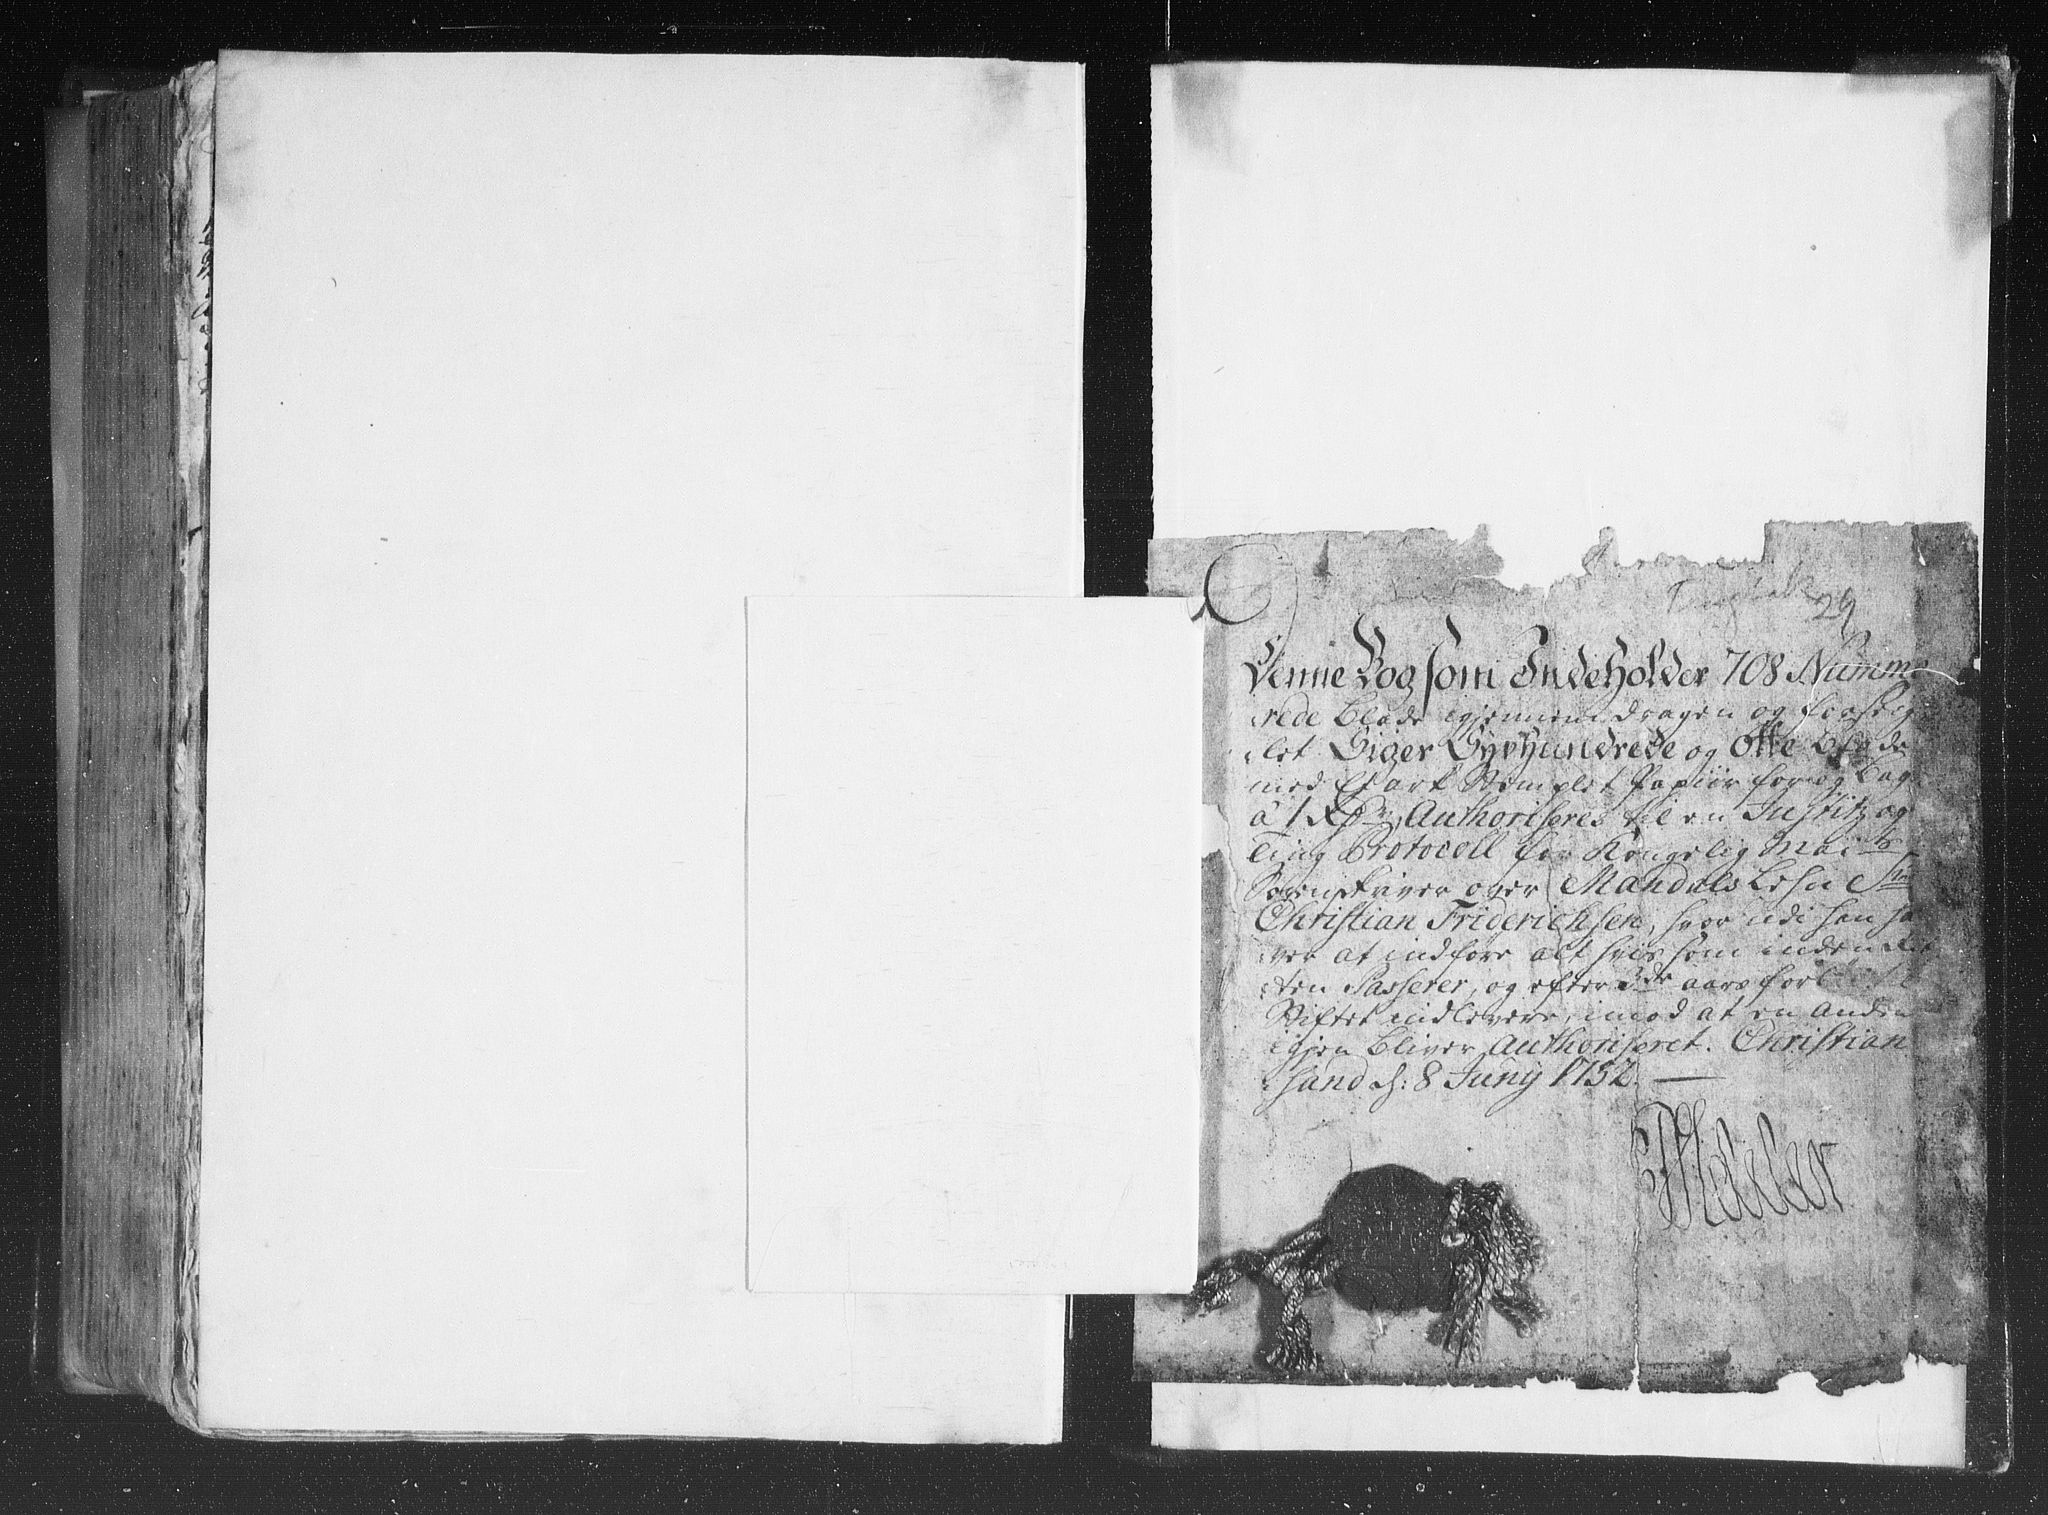 29
Denne Bog som Indeholder 708 Numme
rede Blade igjennemdragen og forseig
let Siger Syvhundrede og Otte Blade
med Et ark Stemplet Papiir for og bag
a 1 Rdr, Authoriseres til en Justitz og
Ting Protocoll for Kongelig Maits
Sorenskriver over Mandals Lehn Sr
Christian Friderichsen, hvor udi han ha
ver at indføre alt hvis som inden Ret
ten Passerer, og efter 3de aars forl
Stiftet indlevere, imod at en anden
igjen bliver Authoriseret. Christian
sand d: 8 Juny 1752.